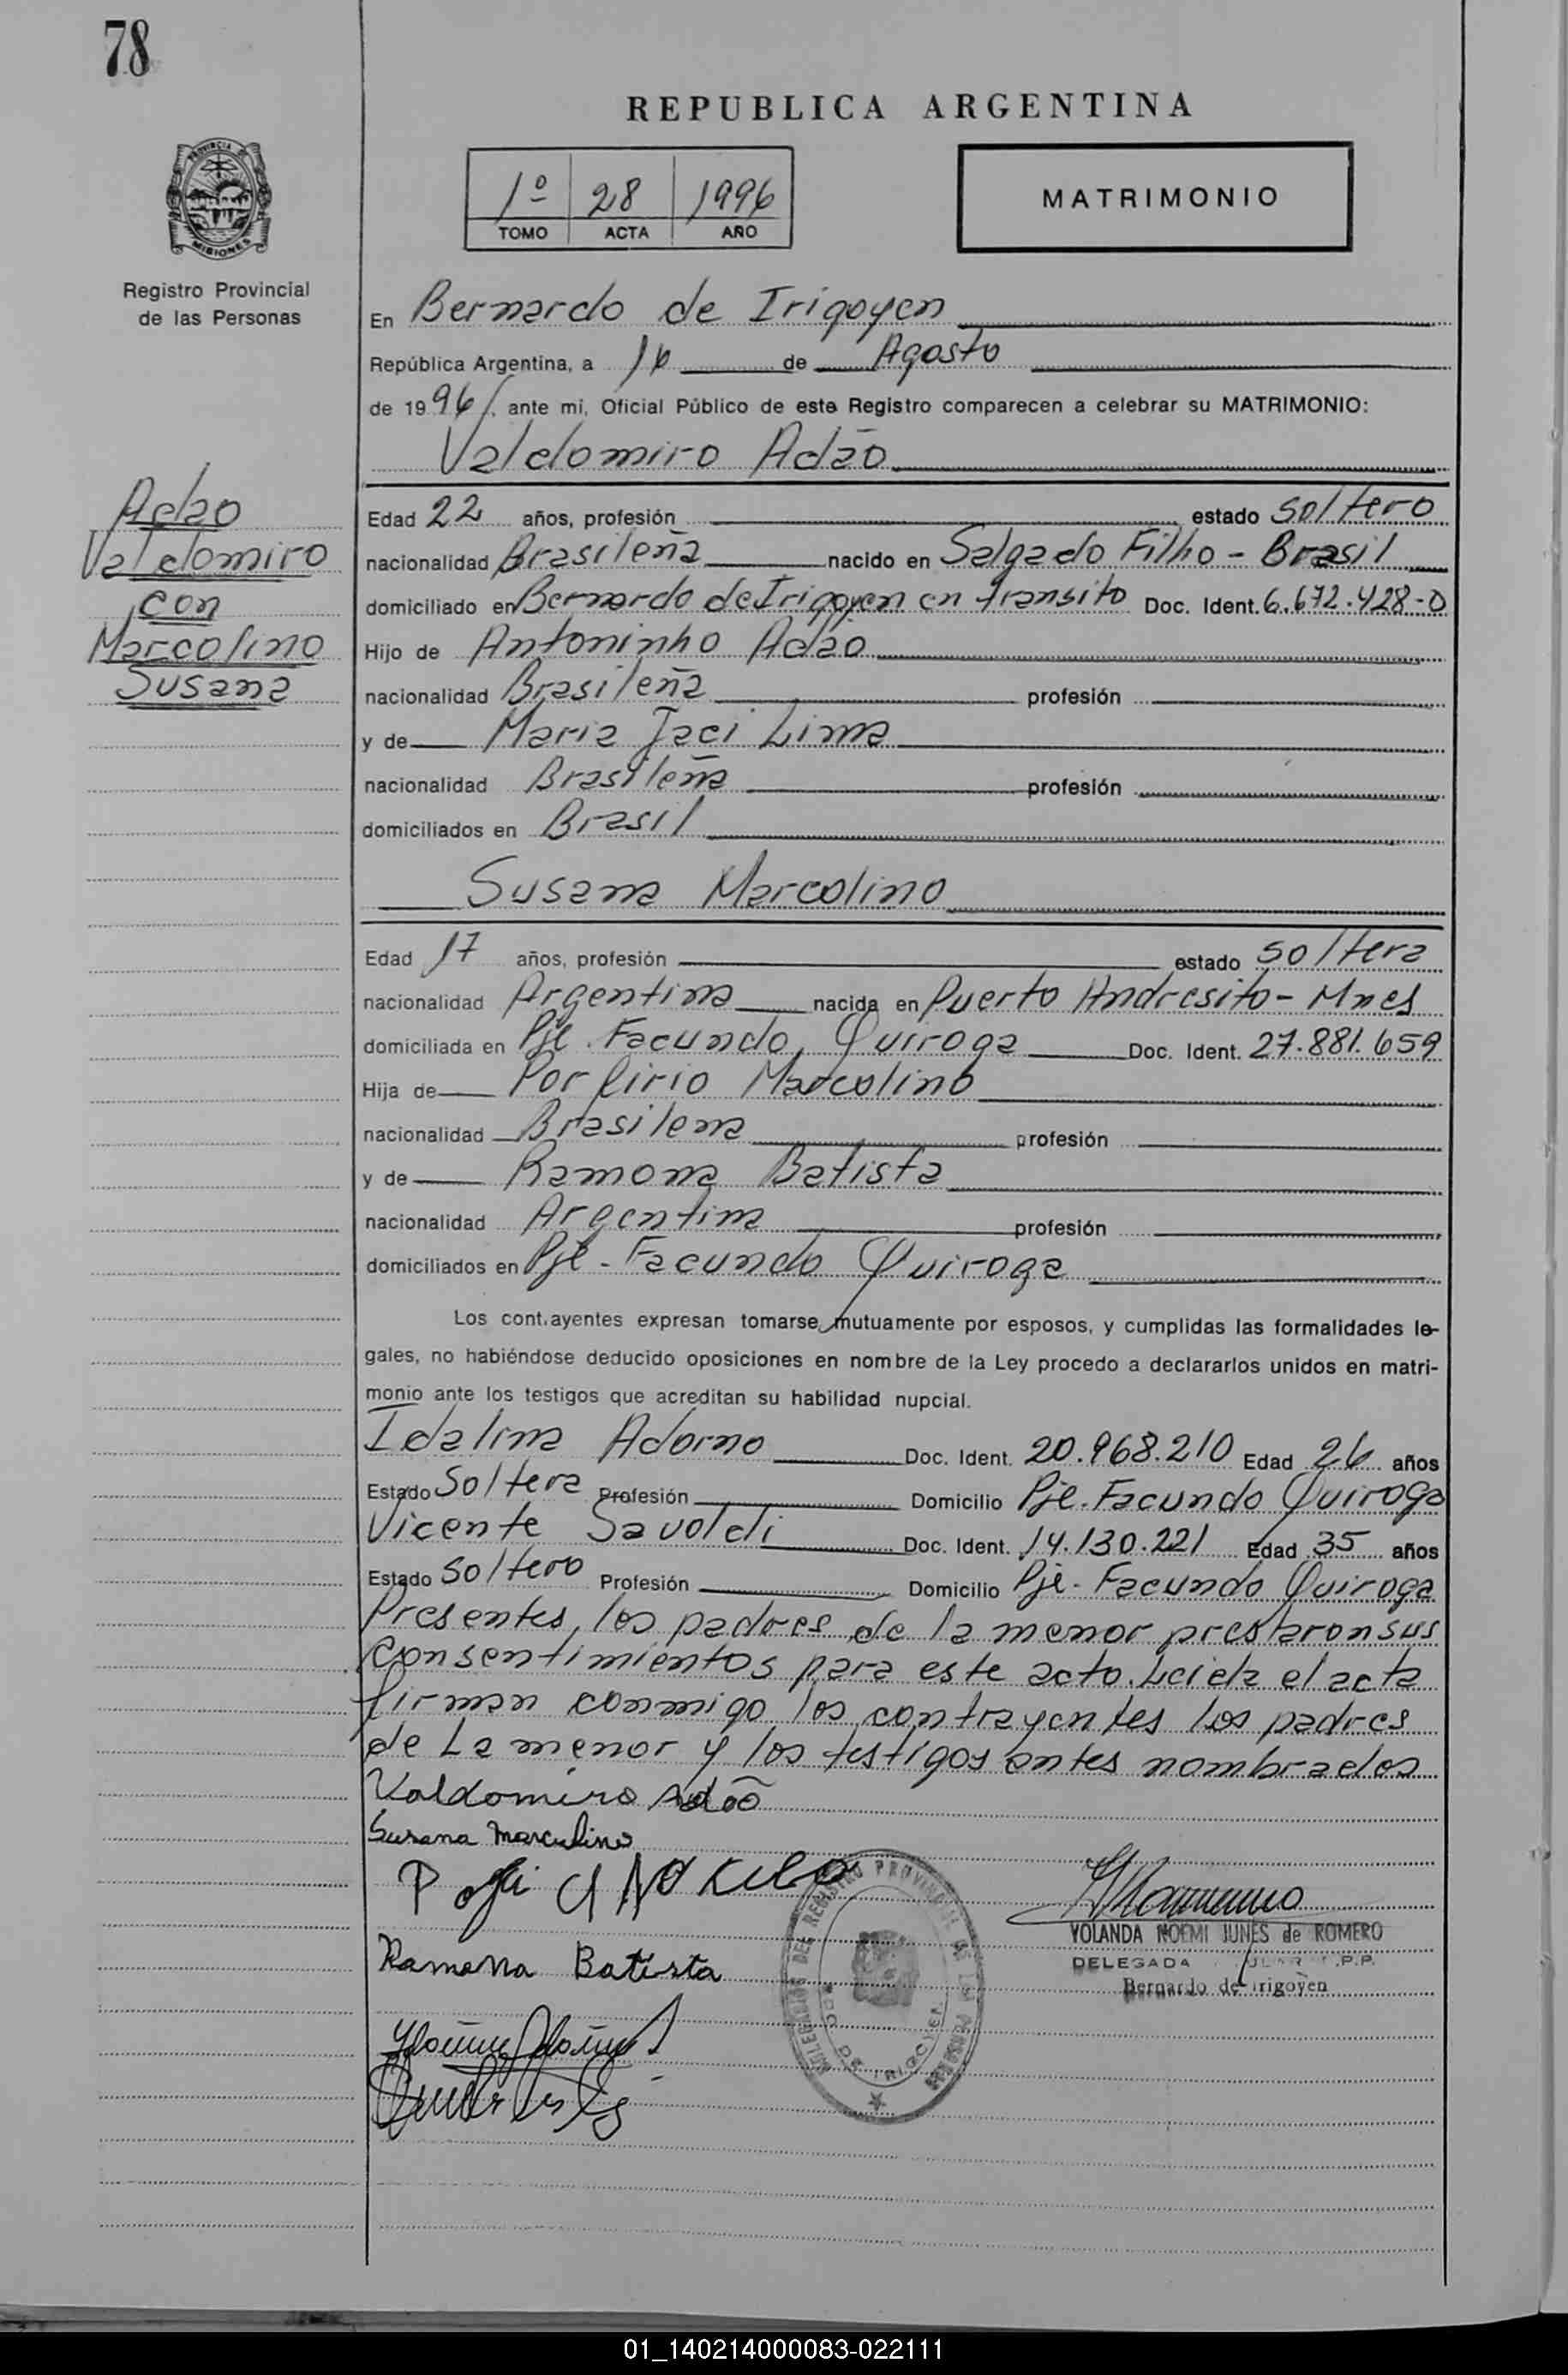 78
REPUBLICA ARGENTINA
1º 28 1996
TOMO ACTA AÑO
MATRIMONIO
PROVINCIA DE
MISIONES
Registro Provincial
de las Personas
Adão
Valdomiro
con
Marcolino
Susana
En Bernardo de Irigoyen
República Argentina, a 16 de Agosto
de 1996, ante mi, Oficial Público de este Registro comparecen a celebrar su MATRIMONIO:
Valdomiro Adão
Edad 22 años, profesión estado soltero
nacionalidad Brasileña nacido en Salgado Filho - Brasil
domiciliado en Bernardo de Irigoyen en transito Doc. Ident. 6.672.428-0
Hijo de Antoninho Adão
nacionalidad Brasileña profesión
y de Maria Jaci Lima
nacionalidad Brasileña profesión
domiciliados en Brasil
Susana Marcolino
Edad 17 años, profesión estado soltera
nacionalidad Argentina nacida en Puerto Andresito - Mnes
domiciliada en Pje. Facundo Quiroga Doc. Ident. 27.881.659
Hija de Porfirio Marcolino
nacionalidad Brasilena profesión
y de Ramona Batista
nacionalidad Argentina profesión
domiciliados en Pje - Facundo Quiroga
Los cont.ayentes expresan tomarse mutuamente por esposos, y cumplidas las formalidades le-
gales, no habiéndose deducido oposiciones en nombre de la Ley procedo a declararlos unidos en matri-
monio ante los testigos que acreditan su habilidad nupcial.
Idalina Adorno Doc. Ident. 20.968.210 Edad 26 años
Estado Soltera Profesión Domicilio Pje. Facundo Quiroga
Vicente Savoldi Doc. Ident. 14.130.221 Edad 35 años
Estado soltero Profesión Domicilio Pje - Facundo Quiroga
Presentes, los padres de la menor prestaron sus
consentimientos para este acto. Leida el acta
firman conmigo los contrayentes los padres
de La menor y los testigos antes nombrados
Valdomiro Adão
Susana Marculino
Ramona Batista
YOLANDA NOEMI JUNES de ROMERO
DELEGADA R.P.P.
Bernardo de Irigoyen
DELEGACION DEL REGISTRO PROVINCIAL DE LAS PERSONAS
BDO. DE IRIGOYEN
01_140214000083-022111